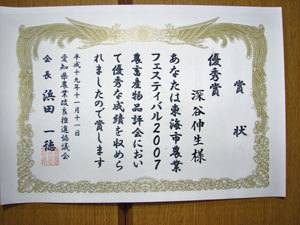 賞状
優秀賞
深谷伸生様
あなたは東海市農業
フェスティバル2007
農畜産物品評会におい
て優秀な成績を収めら
れましたので賞します
平成十九年十一月十一日
愛知県農業改良推進協議会
会長 浜田一徳